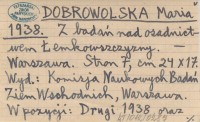 DOBROWOLSKA Maria
1938. Z badań nad osadnict
wem Łemkowszczyzny. –
Warszawa. Stron 7, cm 24 x 17.
Wyd: Komisja Naukowych Badań
Ziem Wschodnich, Warszawa
W pozycji: Drugi 1938 oraz